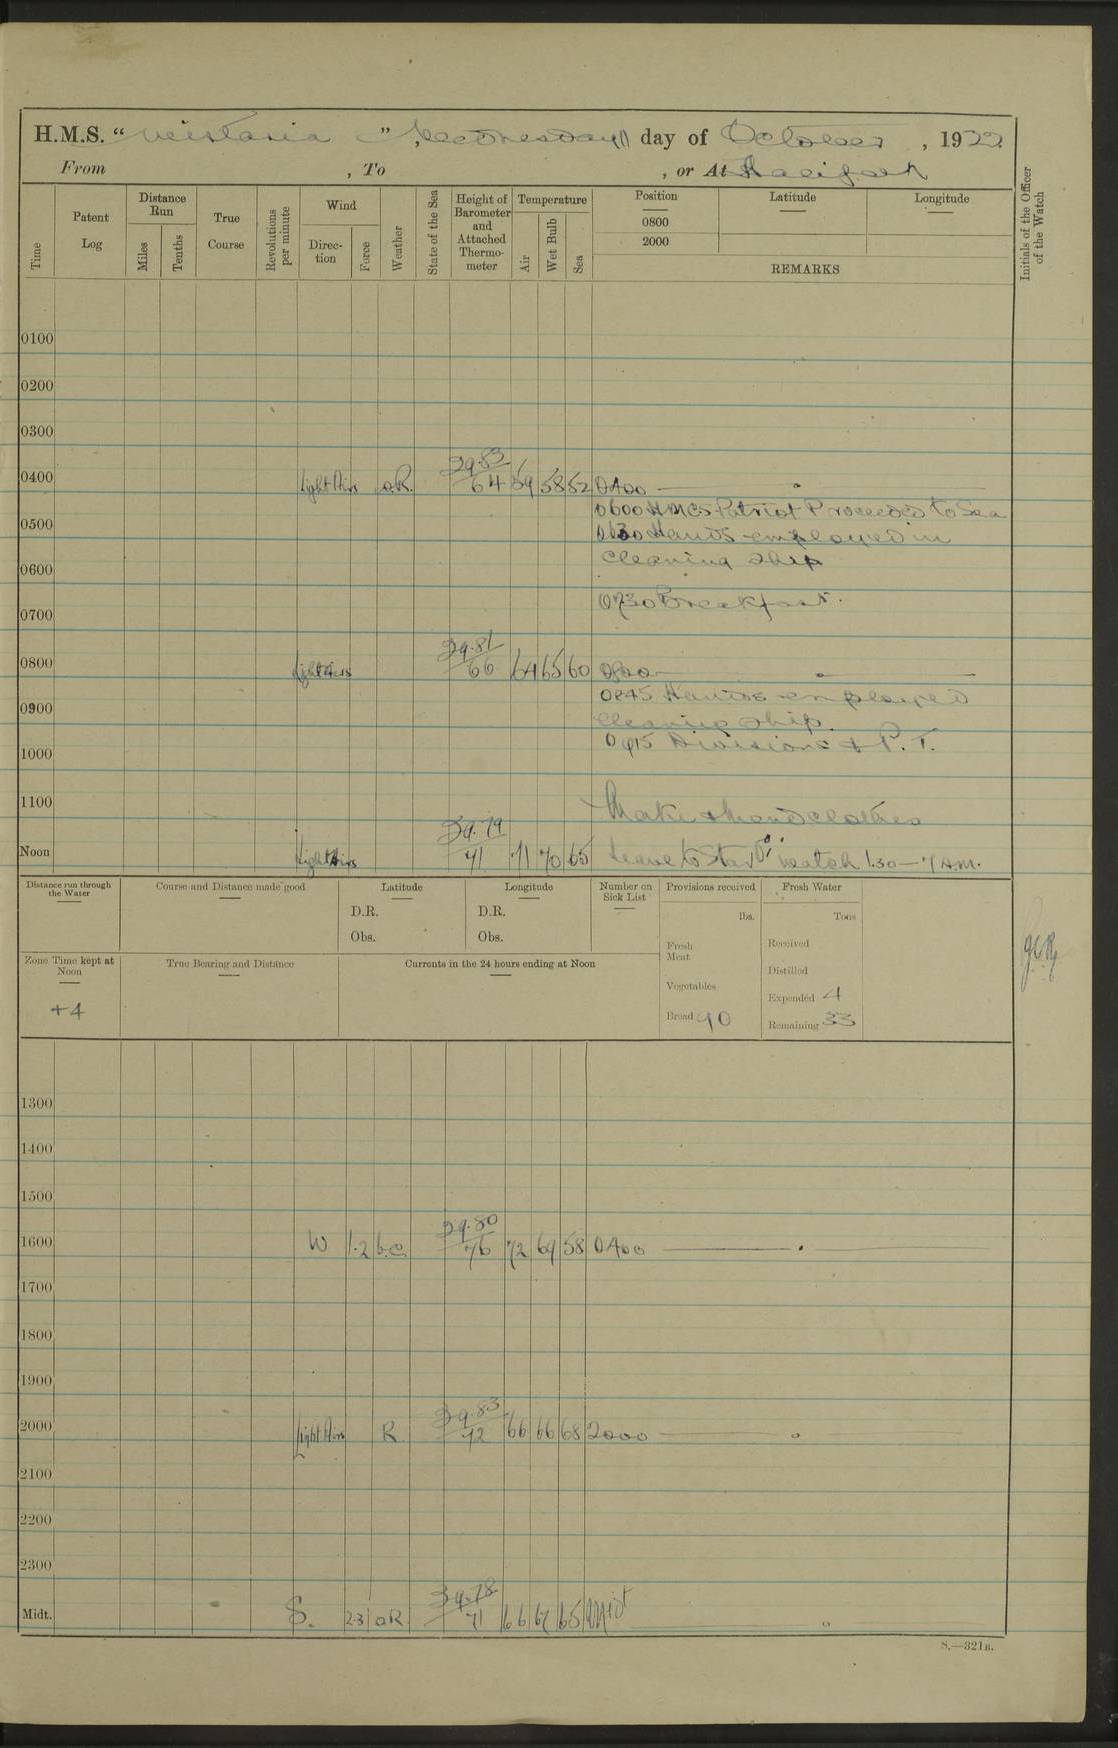 H.M.S. “ Wistaria ”, Wednesday 11 day of October , 1922
From , To , or At Halifax
Time
Patent Log
Distance Run
Miles
Tenths
True Course
Revolutions per minute
Wind
Direction
Force
Weather
State of the Sea
Height of Barometer and Attached Thermometer
Temperature
Air
Wet Bulb
Sea
Position
0800
2000
Latitude
Longitude
REMARKS
Initials of the Officer of the Watch
0100
0200
0300
29.83
0400 Light Airs o.R. 64 59 58 52 0400
0600 HMCS Patriot Proceeded to Sea
0500
0630 Hands employed in
cleaning ship
0600
0730 Breakfast.
0700
29.81
0800 Light Airs 66 64 65 60 0800
0845 Hands employed
0900
cleaning ship.
0915 Divisions & P.T.
1000
1100
Make & Mend clothes
29.79
Noon Light Airs 71 71 70 65 Leave to Starbd watch 1.30 — 7 A.M.
Distance run through the Water
Course and Distance made good
Latitude
D.R.
Obs.
Longitude
D.R.
Obs.
Number on Sick List
Provisions received
lbs.
Fresh Meat
Vegetables
Bread 90
Fresh Water
Tons
Received
Distilled
Expended 4
Remaining 33
Zone Time kept at Noon
+4
True Bearing and Distance
Currents in the 24 hours ending at Noon
1300
1400
1500
29.80
1600 W 1.2 b.c. 76 72 69 58 0400
1700
1800
1900
29.83
2000 Light Airs R 72 66 66 68 2000
2100
2200
2300
29.78
Midt. S. 2-3 oR 71 66 67 65 Midt
S.—321B.